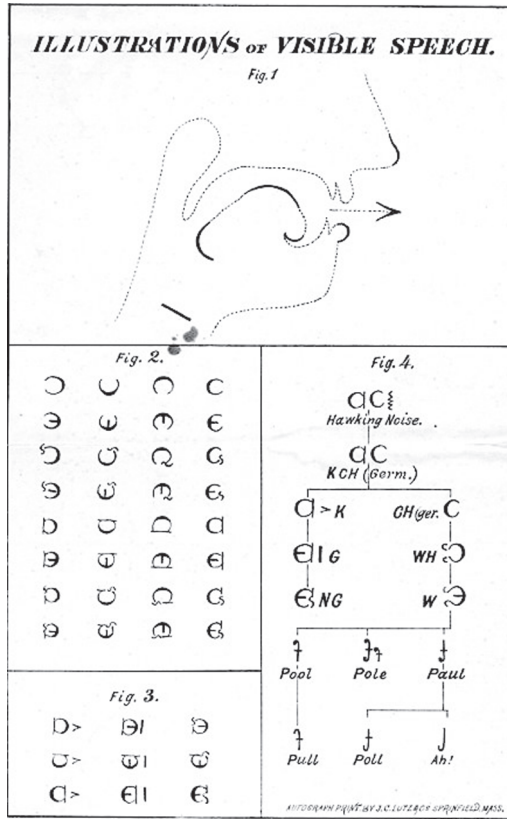 ILLUSTRATIONS OF VISIBLE SPEECH.
Fig. 1
Fig. 2.
Fig. 3.
Fig. 4.
Hawking Noise.
K CH (Germ.)
K
CH (ger.
G
WH
NG
W
Pool Pole Paul
Pull Poll Ah!
AUTOGRAPH PRINT BY J.C. LUTZ & CO SPRINFIELD, MASS.